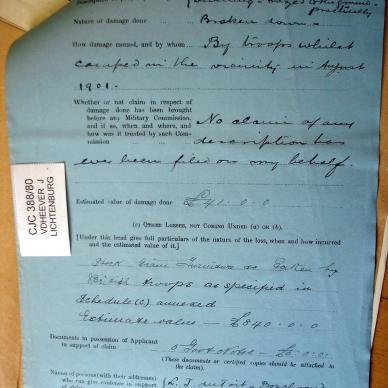 practically
Nature of damage done ... Broken down -
How damage caused, and by whom ... By troops whilst
camped in the vicinity in August
1901.
Whether or not claim in respect of
damage done has been brought
before any Military Commission,
and if so, when and where, and
how was it treated by such Com-
mission ...
No claim of any
description has
ever been filed on my behalf.
Estimated value of damage done £41. 0. 0
(c) OTHER LOSSES, NOT COMING UNDER (a) OR (b).
[Under this head give full particulars of the nature of the loss, when and how incurred
and the estimated value of it.]
Stock Grain Furniture &c Taken by
British troops as specified in
Schedule (c) annexed
Estimate value - £840. 0. 0
Documents in possession of Applicant
in support of claim ...
5
(These documents or certified copies should be attached to
the claim).
Names of person(s) with their address(es)
who can give evidence in support
CJC 388/80
VDHEEVER J
LICHTENBURG